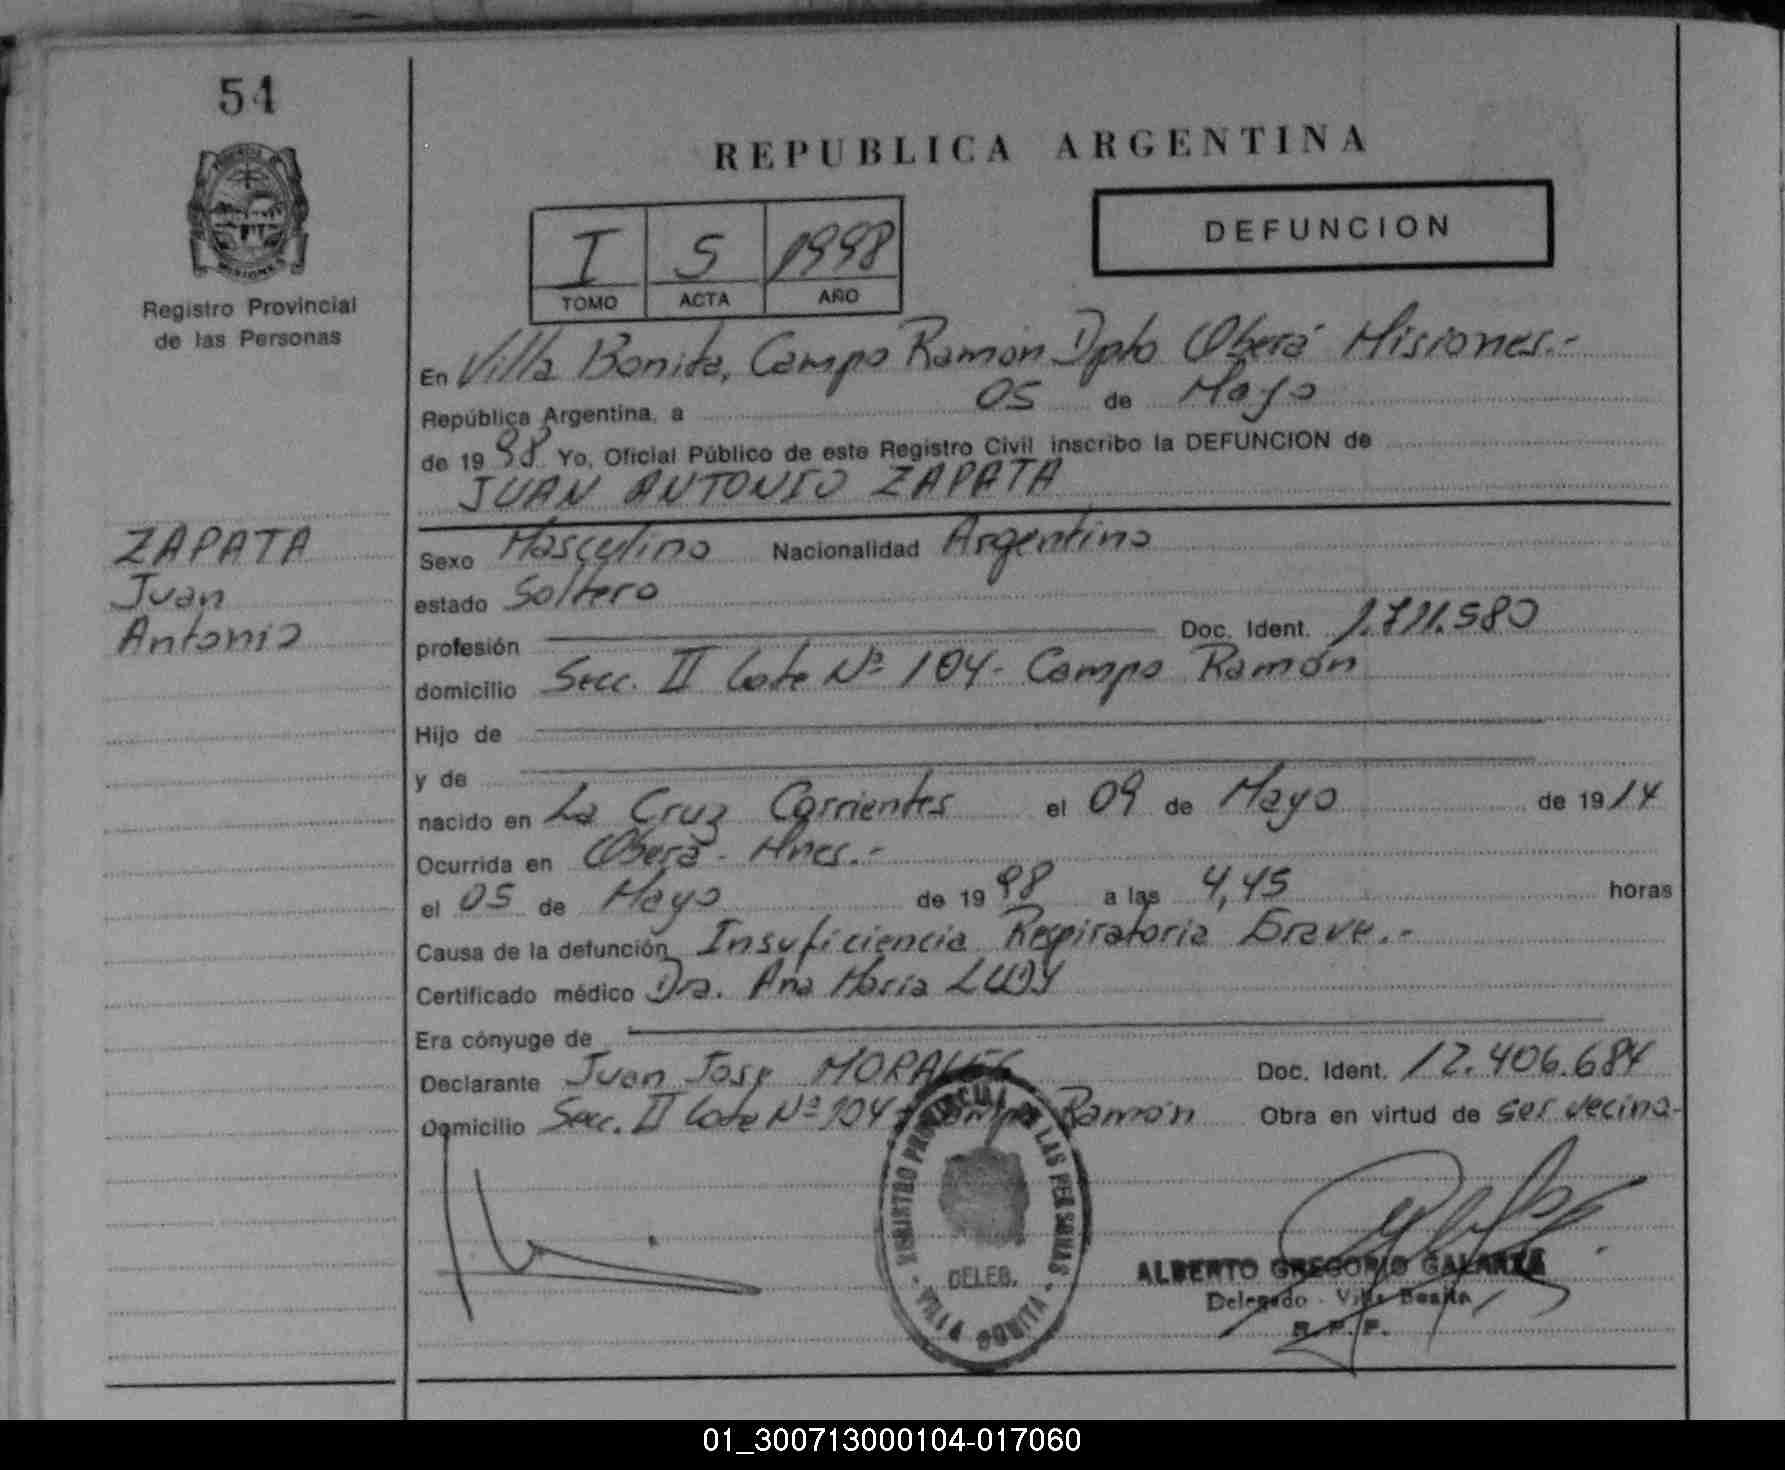 54
Registro Provincial
de las Personas
REPUBLICA ARGENTINA
I 5 1998
TOMO ACTA AÑO
DEFUNCION
En Villa Bonita, Campo Ramón Dpto Oberá Misiones.-
República Argentina, a 05 de Mayo
de 1998 Yo, Oficial Público de este Registro Civil inscribo la DEFUNCION de
JUAN ANTONIO ZAPATA
ZAPATA
Juan
Antonio
Sexo Masculino Nacionalidad Argentino
estado Soltero
profesión Doc. Ident. 1.711.580
domicilio Secc. II Lote Nº 104- Campo Ramón
Hijo de
y de
nacido en La Cruz Corrientes el 09 de Mayo de 1914
Ocurrida en Oberá - Mnes.-
el 05 de Mayo de 1998 a las 4,45 horas
Causa de la defunción Insuficiencia Respiratoria Grave.-
Certificado médico Dra. Ana Maria
Era cónyuge de
Declarante Juan José MORALES Doc. Ident. 12.406.684
Domicilio Secc. II Lote Nº 104- Campo Ramón Obra en virtud de ser vecino-
REGISTRO PROVINCIAL DE LAS PERSONAS
DELEG.
VILLA BONITA
ALBERTO GREGORIO GALARZA
Delegado - Villa Bonita
R.P.P.
01_300713000104-017060